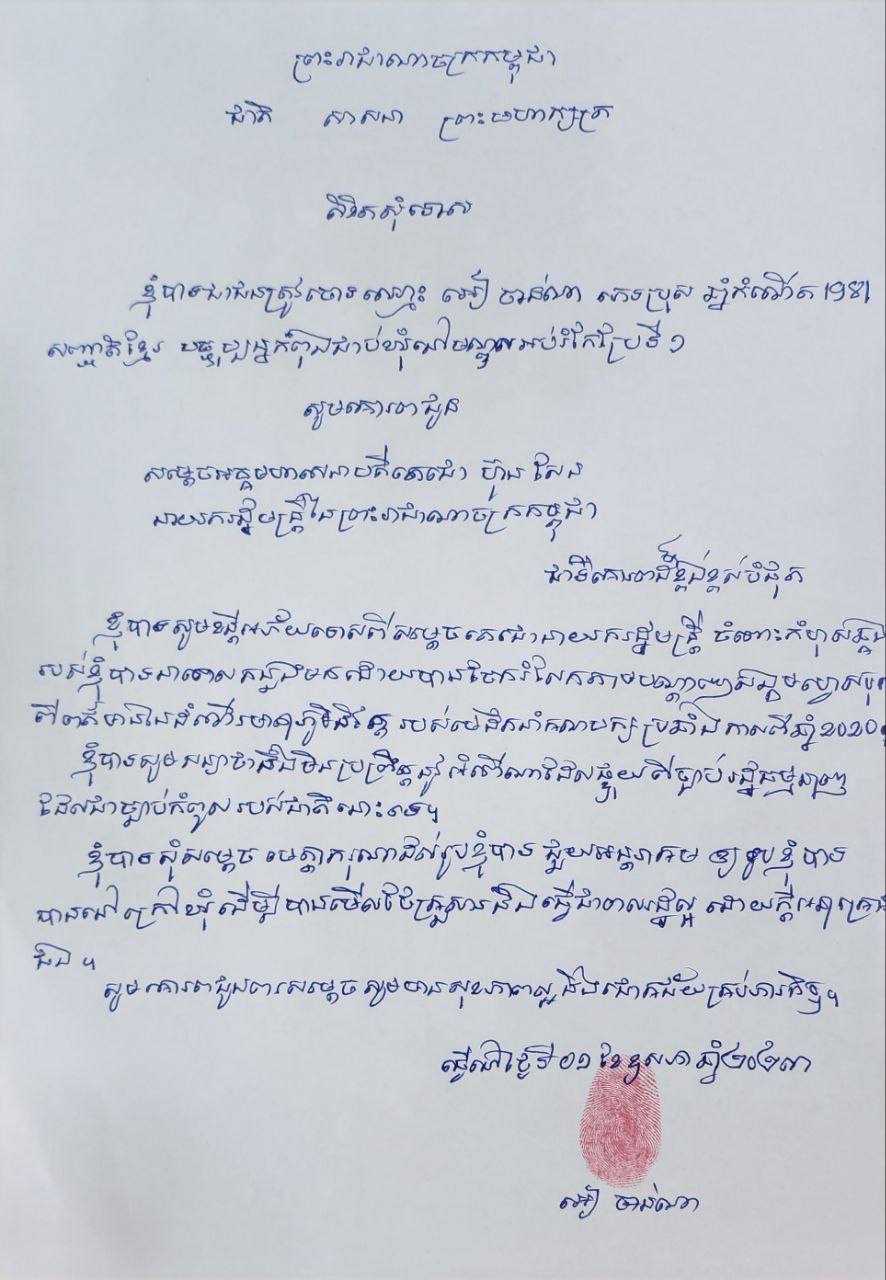 ព្រះរាជាណាចក្រកម្ពុជា
ជាតិ សាសនា ព្រះមហាក្សត្រ
លិខិតសុំទោស
ខ្ញុំបាទជាជនត្រូវចោទឈ្មោះ អៀ ចាន់ណា ភេទប្រុស ឆ្នាំកំណើត 1981
សញ្ជាតិខ្មែរ បច្ចុប្បន្នកំពុងជាប់ឃុំនៅមណ្ឌលអប់រំកែប្រែទី ១
សូមគោរពជូន
សម្តេចអគ្គមហាសេនាបតីតេជោ ហ៊ុន សែន
នាយករដ្ឋមន្ត្រីនៃព្រះរាជាណាចក្រកម្ពុជា
ជាទីគោរពដ៏ខ្ពង់ខ្ពស់បំផុត
ខ្ញុំបាទសូមខន្តីអភ័យទោសពីសម្តេចតេជោនាយករដ្ឋមន្ត្រី ចំពោះកំហុសឆ្គង
របស់ខ្ញុំបាទនាពេលកន្លងមក ដោយបានចែករំលែកតាមបណ្តាញសង្គមហ្វេសប៊ុក
ពីព័ត៌មាននៃដំណើរមាតុភូមិនិវត្តន៍ របស់មេដឹកនាំគណបក្សប្រឆាំង កាលពីឆ្នាំ 2020
ខ្ញុំបាទសូមសន្យាថានឹងមិនប្រព្រឹត្តនូវ អំពើណាដែលផ្ទុយពីច្បាប់រដ្ឋធម្មនុញ្ញ
ដែលជាច្បាប់កំពូលរបស់ជាតិនោះទេ។
ខ្ញុំបាទសុំសម្តេច មេត្តាករុណាដល់រូបខ្ញុំបាទ ជួយអន្តរាគម ឲ្យរូបខ្ញុំបាទ
បាននៅក្រៅឃុំដើម្បីបានមើលថែគ្រួសារនិងធ្វើជាពលរដ្ឋល្អ ដោយក្តីអនុគ្រោះ
សូមគោរពជូនពរសម្តេច សូមមានសុខភាពល្អ និងជោគជ័យគ្រប់ភារកិច្ច។
ធ្វើនៅថ្ងៃទី ០១ ខែឧសភា ឆ្នាំ២០២៣
អៀ ចាន់ណា